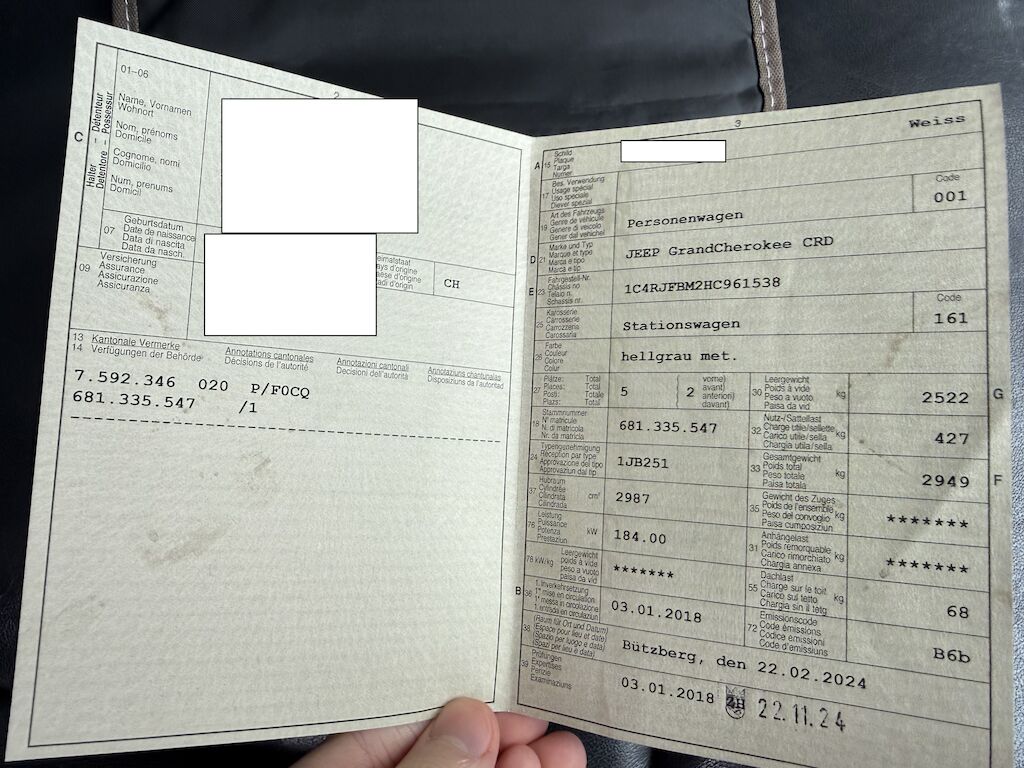 01–06
2
C
Halter – Détenteur
Detentore – Possessur
Name, Vornamen
Wohnort
Nom, prénoms
Domicile
Cognome, nomi
Domicilio
Num, prenums
Domicil
07
Geburtsdatum
Date de naissance
Data di nascita
Data da nasch.
Heimatstaat
CH
09
Versicherung
Assurance
Assicurazione
Assicuranza
13 Kantonale Vermerke
14 Verfügungen der Behörde
Annotations cantonales
Décisions de l'autorité
Annotazioni cantonali
Decisioni dell'autorità
Annotaziuns chantunalas
Disposiziuns da l'autoritad
7.592.346 020 P/F0CQ
681.335.547 /1
3
Weiss
A 15
Schild
Plaque
Targa
Numer
17
Bes. Verwendung
Usage spécial
Uso speciale
Diever spezial
Code
001
19
Art des Fahrzeugs
Genre de véhicule
Genere di veicolo
Gener dal vehichel
Personenwagen
D 21
Marke und Typ
Marque et type
Marca e tipo
Marca e tip
JEEP GrandCherokee CRD
E 23
Fahrgestell-Nr.
Châssis no
Telaio n.
Schassis nr.
1C4RJFBM2HC961538
25
Karosserie
Carrosserie
Carrozzeria
Carossaria
Stationswagen
Code
161
26
Farbe
Couleur
Colore
Colur
hellgrau met.
27
Plätze: Total
Places: Total
Posti: Totale
Plazs: Total
5
2
vorne)
avant)
anteriori)
davant)
30
Leergewicht
Poids à vide
Peso a vuoto
Paisa da vid
kg
2522
G
18
Stammnummer
N° matricule
N. di matricola
Nr. da matricla
681.335.547
32
Nutz-/Sattellast
Charge utile/sellette
Carico utile/sella
Chargia utila/sella
kg
427
24
Typengenehmigung
Réception par type
Approvazione del tipo
Approvaziun dal tip
1JB251
33
Gesamtgewicht
Poids total
Peso totale
Paisa totala
kg
2949
F
37
Hubraum
Cylindrée
Cilindrata
Cilindrada
cm³
2987
35
Gewicht des Zuges
Poids de l'ensemble
Peso del convoglio
Paisa cumposiziun
kg
*******
76
Leistung
Puissance
Potenza
Prestaziun
kW
184.00
31
Anhängelast
Poids remorquable
Carico rimorchiato
Chargia annexa
kg
*******
78 kW/kg
Leergewicht
poids à vide
peso a vuoto
paisa da vid
*******
55
Dachlast
Charge sur le toit
Carico sul tetto
Chargia sin il tetg
kg
68
B 36
1. Inverkehrsetzung
1re mise en circulation
1a messa in circolazione
1. entrada en circulaziun
03.01.2018
72
Emissionscode
Code émissions
Codice emissioni
Code d'emissiuns
B6b
38
(Raum für Ort und Datum)
(Espace pour lieu et date)
(Spazio per luogo e data)
(Spazi per lieu e data)
Bützberg, den 22.02.2024
39
Prüfungen
Expertises
Perizie
Examinaziuns
03.01.2018 ZH 22.11.24